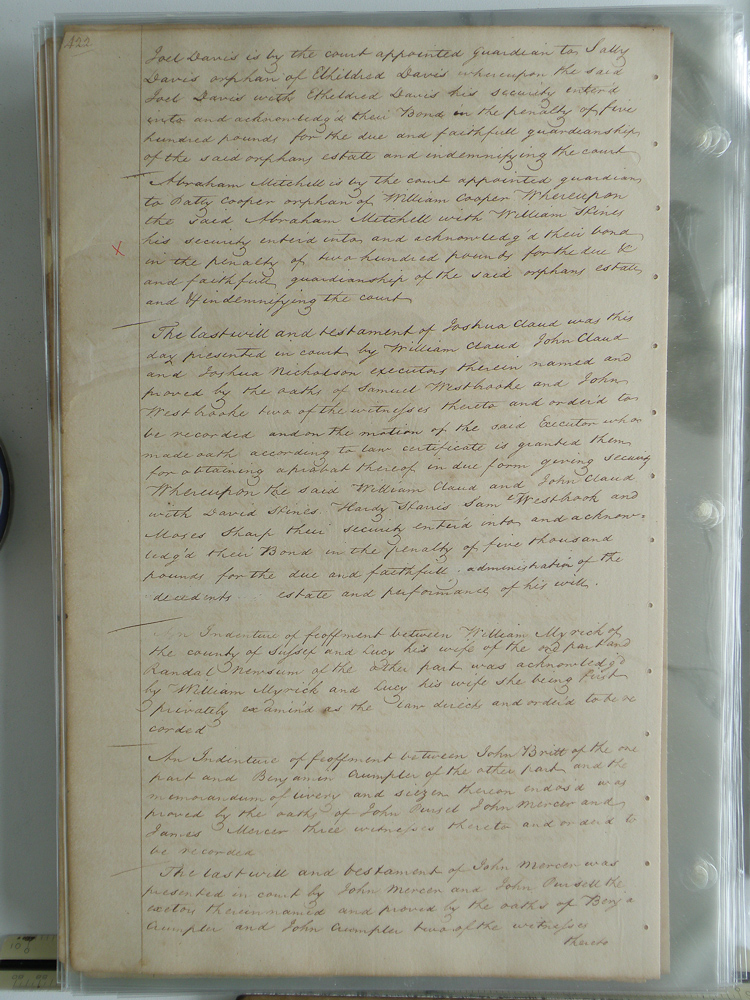 422
Joel Davis is by the court appointed guardian to Sally
Davis orphan of Etheldred Davis whereupon the said
Joel Davis with Etheldred Davis his security enterd
into and acknowledg'd their Bond in the penalty of five
hundred pounds for the due and faithfull guardianship
of the said orphans estate and indemnifying the court
Abraham Mitchell is by the court appointed guardian
to Patty Cooper orphan of William Cooper Whereupon
the said Abraham Mitchell with William Skines
his security enterd into and acknowledg'd their bond
in the penalty of two hundred pounds for the due &
and faithfull guardianship of the said orphans estate
and indemnifying the court
The last will and testament of Joshua Claud was this
day presented in court by William Claud John Claud
and Joshua Nicholson executors therein named and
proved by the oaths of Samuel Westbrooke and John
Westbrooke two of the witnesses thereto and order'd to
be recorded and on the motion of the said Executor who
made oath according to law certificate is granted them
for obtaining a probat thereof in due form giving security
Whereupon the said William Claud and John Claud
with David Skines Hardy Harris Saml Westbrook and
Moses Sharp their security enterd into and acknow=
ledg'd their Bond in the penalty of five thousand
pounds for the due and faithfull administration of the
decedents estate and performance of his will.
An Indenture of feoffment between William Myrick of
the county of Sussex and Lucy his wife of the one part and
Randal Newsum of the other part was acknowledg'd
by William Myrick and Lucy his wife she being first
privately examin'd as the law directs and order'd to be re
corded
An Indenture of feoffment between John Britt of the one
part and Benjamin Crumpler of the other part and the
memorandum of livery and seizen thereon endors'd was
proved by the oaths of John Pursel John Mercer and
James Mercer three witnesses thereto and order'd to
be recorded
The last will and testament of John Mercer was
presented in court by John Mercer and John Pursell the
exetors therein named and proved by the oaths of Benja
Crumpler and John Crumpler two of the witnesses
thereto